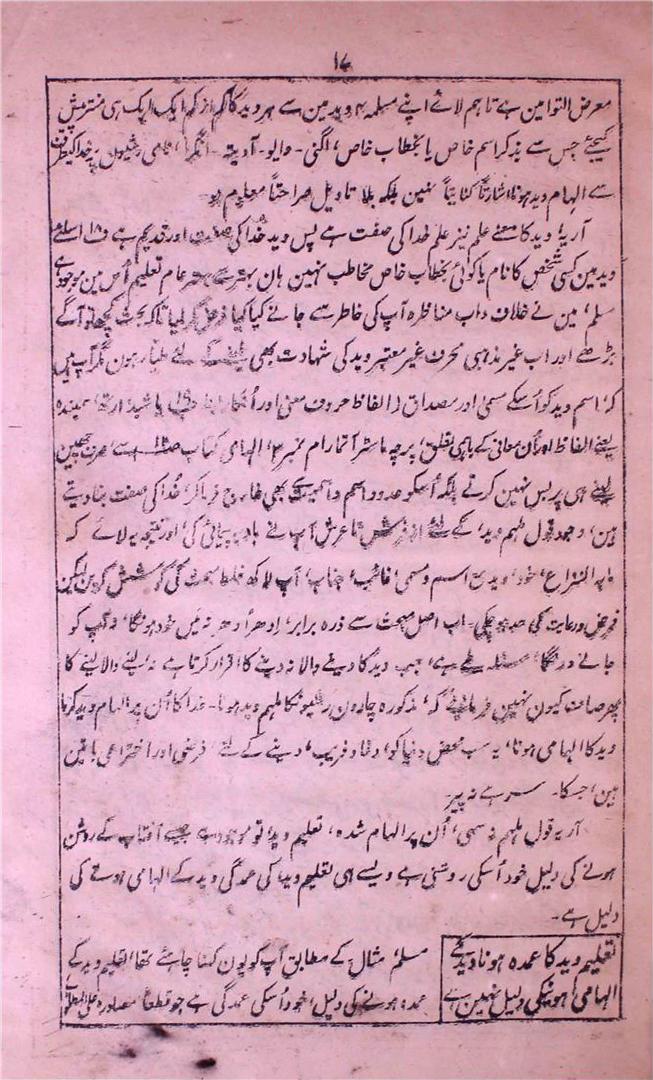 ۱۷
معرض التوا مین ہے تاہم لائے اپنے مسلمہ ۴ وید مین سے ہر وید کا کم از کم ایک ایک ہی منتر پیش
کیجئے جس سے بذکر اسم خاص یا بخطاب خاص، اگنی۔ وایو۔ آدیتہ۔ انگرا، نامی رشیون پر خدا کیطرف
سے الہام وید ہونا اشارتاً کنایتاً نہین بلکہ بلا تاویل صراحتاً معلوم ہو۔
آریہ وید کا معنے علم نیز علم خدا کی صفت ہے پس وید خدا کی صفت اور قدیم ہے اسلئے
وید مین کسی شخص کا نام یا کوئی بخطاب خاص مخاطب نہین ہان بہتر سے بہتر عام تعلیم اُس مین موجود ہے
مسلم، مین نے خلاف داب مناظرہ آپ کی خاطر سے جانے کیا کیا فرض کر لیا تاکہ بحث کچھ تو آگے
بڑھے اور اب غیر مذہبی محرف غیر معتبر وید کی شہادت بھی لینے کے لئے طیار ہون مگر آپ ہین
کہ، اسم وید کو اُسکے مسمیٰ اور مصداق (الفاظ حروف معنی اور شبد ارتھ سمبندھ
یعنے الفاظ اور اُن معانی کے باہمی تعلق، پرچہ ماسٹر آتمارام نمبر ۳، الہامی کتاب
لینے ہی پر بس نہین کرتے بلکہ اُسکو حدود اسم و بھی خارج فرما کر، خدا کی صفت بنا دیتے
ہین، وجود قول ملہم وید، کے لئے از فرش تا عرش آپ نے بادیہ پیمائی کی، اور نتیجہ یہ لائے کہ
مابہ النزاع، خود، وید مع اسم و مسمی، غائب، جناب، آپ لاکھ غلط مبحث کی کوشش کرین لیکن
فرض و رعایت کی حد ہو چکی۔ اب اصل مبحث سے ذرہ برابر، اِدھر اُدھر نہ مین خود ہونگا، نہ آپ کو
جانے دونگا، مسئلہ طے ہے، جب وید کا دینے والا نہ دینے کا اقرار کرتا ہے نہ، لینے والا لینے کا
پھر صاف کیون نہین فرماتے کہ، مذکورہ چارون رشیونکا ملہم وید ہونا۔ خدا کا اُن پر الہام وید کرنا
وید کا الہامی ہونا، یہ سب محض دنیا کو، دغا و فریب، دینے کے لئے، فرضی اور اختراعی باتین
ہین، جسکا۔ سر ہے نہ پیر۔
آریہ قول ملہم نہ سہی، اُن پر الہام شدہ، تعلیم وید، تو موجود ہے جیسے آفتاب کے روشن
ہونے کی دلیل خود اُسکی روشنی ہے ویسے ہی تعلیم وید، کی عمدگی وید کے الہامی ہونے کی
دلیل ہے۔
تعلیم وید کا عمدہ ہونا وید کے
الہامی ہونیکی دلیل نہین ہے
مسلم، مثال کے مطابق آپ کو یون کہنا چاہئے تھا، تعلیم وید کے
عمدہ ہونے کی دلیل، خود اُسکی عمدگی ہے جو قطعاً مصادرہ علی المطلوب